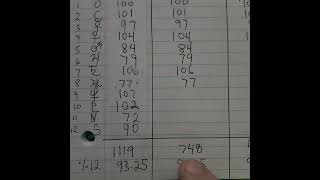 1 100 100
2 101 101
3 97 97
4 104 104
5 84 84
6 79 79
7 106 106
8 77 77
9 107
10 102
11 N 72
12 S 90
1119 748
%12 93.25